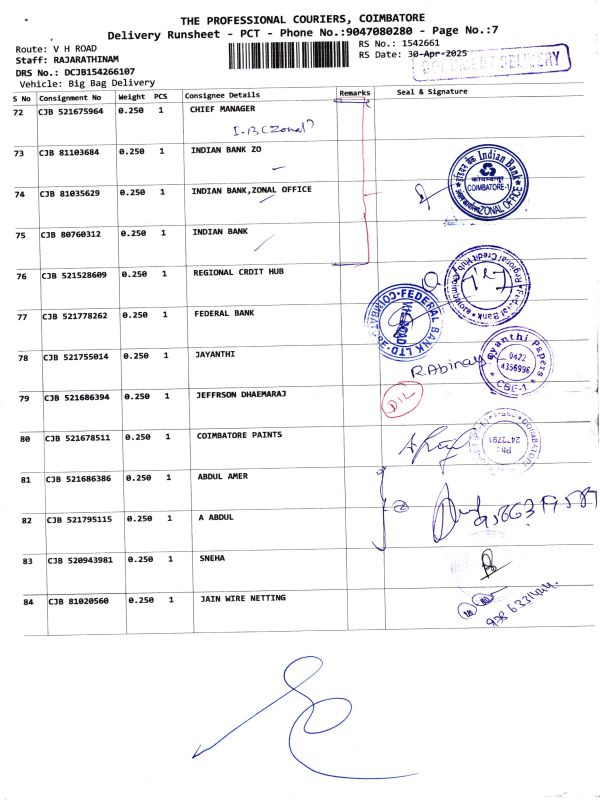 THE PROFESSIONAL COURIERS, COIMBATORE
Delivery Runsheet - PCT - Phone No.:9047080280 - Page No.:7
Route: V H ROAD
RS No.: 1542661
Staff: RAJARATHINAM
RS Date: 30-Apr-2025
DOCUMENT DELIVERY
DRS No.: DCJB154266107
Vehicle: Big Bag Delivery
S No Consignment No Weight PCS Consignee Details Remarks Seal & Signature
72 CJB 521675964 0.250 1 CHIEF MANAGER
I.B (Zonal)
73 CJB 81103684 0.250 1 INDIAN BANK ZO
Indian Bank
COIMBATORE-1
ZONAL OFFICE
74 CJB 81035629 0.250 1 INDIAN BANK,ZONAL OFFICE
75 CJB 80760312 0.250 1 INDIAN BANK
76 CJB 521528609 0.250 1 REGIONAL CRDIT HUB
Federal Bank
Regional Credit Hub
77 CJB 521778262 0.250 1 FEDERAL BANK
FEDERAL BANK LTD
V.H. ROAD
78 CJB 521755014 0.250 1 JAYANTHI
R.Abinay
Papers
0422
4356996
CBE-1
79 CJB 521686394 0.250 1 JEFFRSON DHAEMARAJ
D/L
80 CJB 521678511 0.250 1 COIMBATORE PAINTS
COIMBATORE
81 CJB 521686386 0.250 1 ABDUL AMER
82 CJB 521795115 0.250 1 A ABDUL
83 CJB 520943981 0.250 1 SNEHA
84 CJB 81020560 0.250 1 JAIN WIRE NETTING